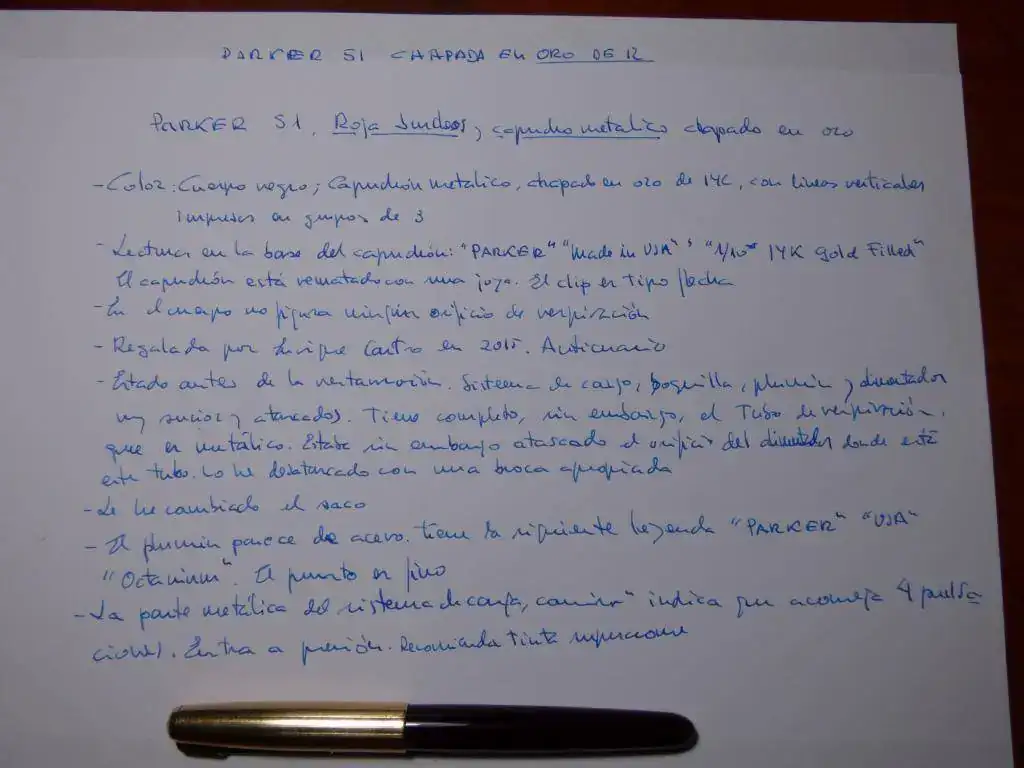 PARKER 51 CHAPADA EN ORO DE 12
PARKER 51. Roja Burdeos, capuchón metalico chapado en oro
- Color: Cuerpo negro; Capuchón metalico, chapado en oro de 14K, con lineas verticales
impresas en grupos de 3
- Lectura en la base del capuchón: "PARKER" "Made in USA" "1/10 14K Gold Filled"
El capuchón está rematado con una joya. El clip es tipo flecha
- En el cuerpo no figura ningún orificio de respiración
- Regalada por Enrique Castro en 2015. Anticuario
- Estado antes de la restauración. Sistema de carga, boquilla, plumin y alimentador
muy sucios y atascados. Tiene completo, sin embargo, el Tubo de respiración,
que es metálico. Estaba sin embargo atascado el orificio del alimentador donde está
este tubo. Lo he desatascado con una broca apropiada
- Le he cambiado el saco
- El plumin parece de acero. Tiene la siguiente leyenda "PARKER" "USA"
"Octanium". El punto es fino
- La parte metálica del sistema de carga, indica que aconseja 4 pulsa
ciones. Entra a presión. Recomienda Tinta superchrome